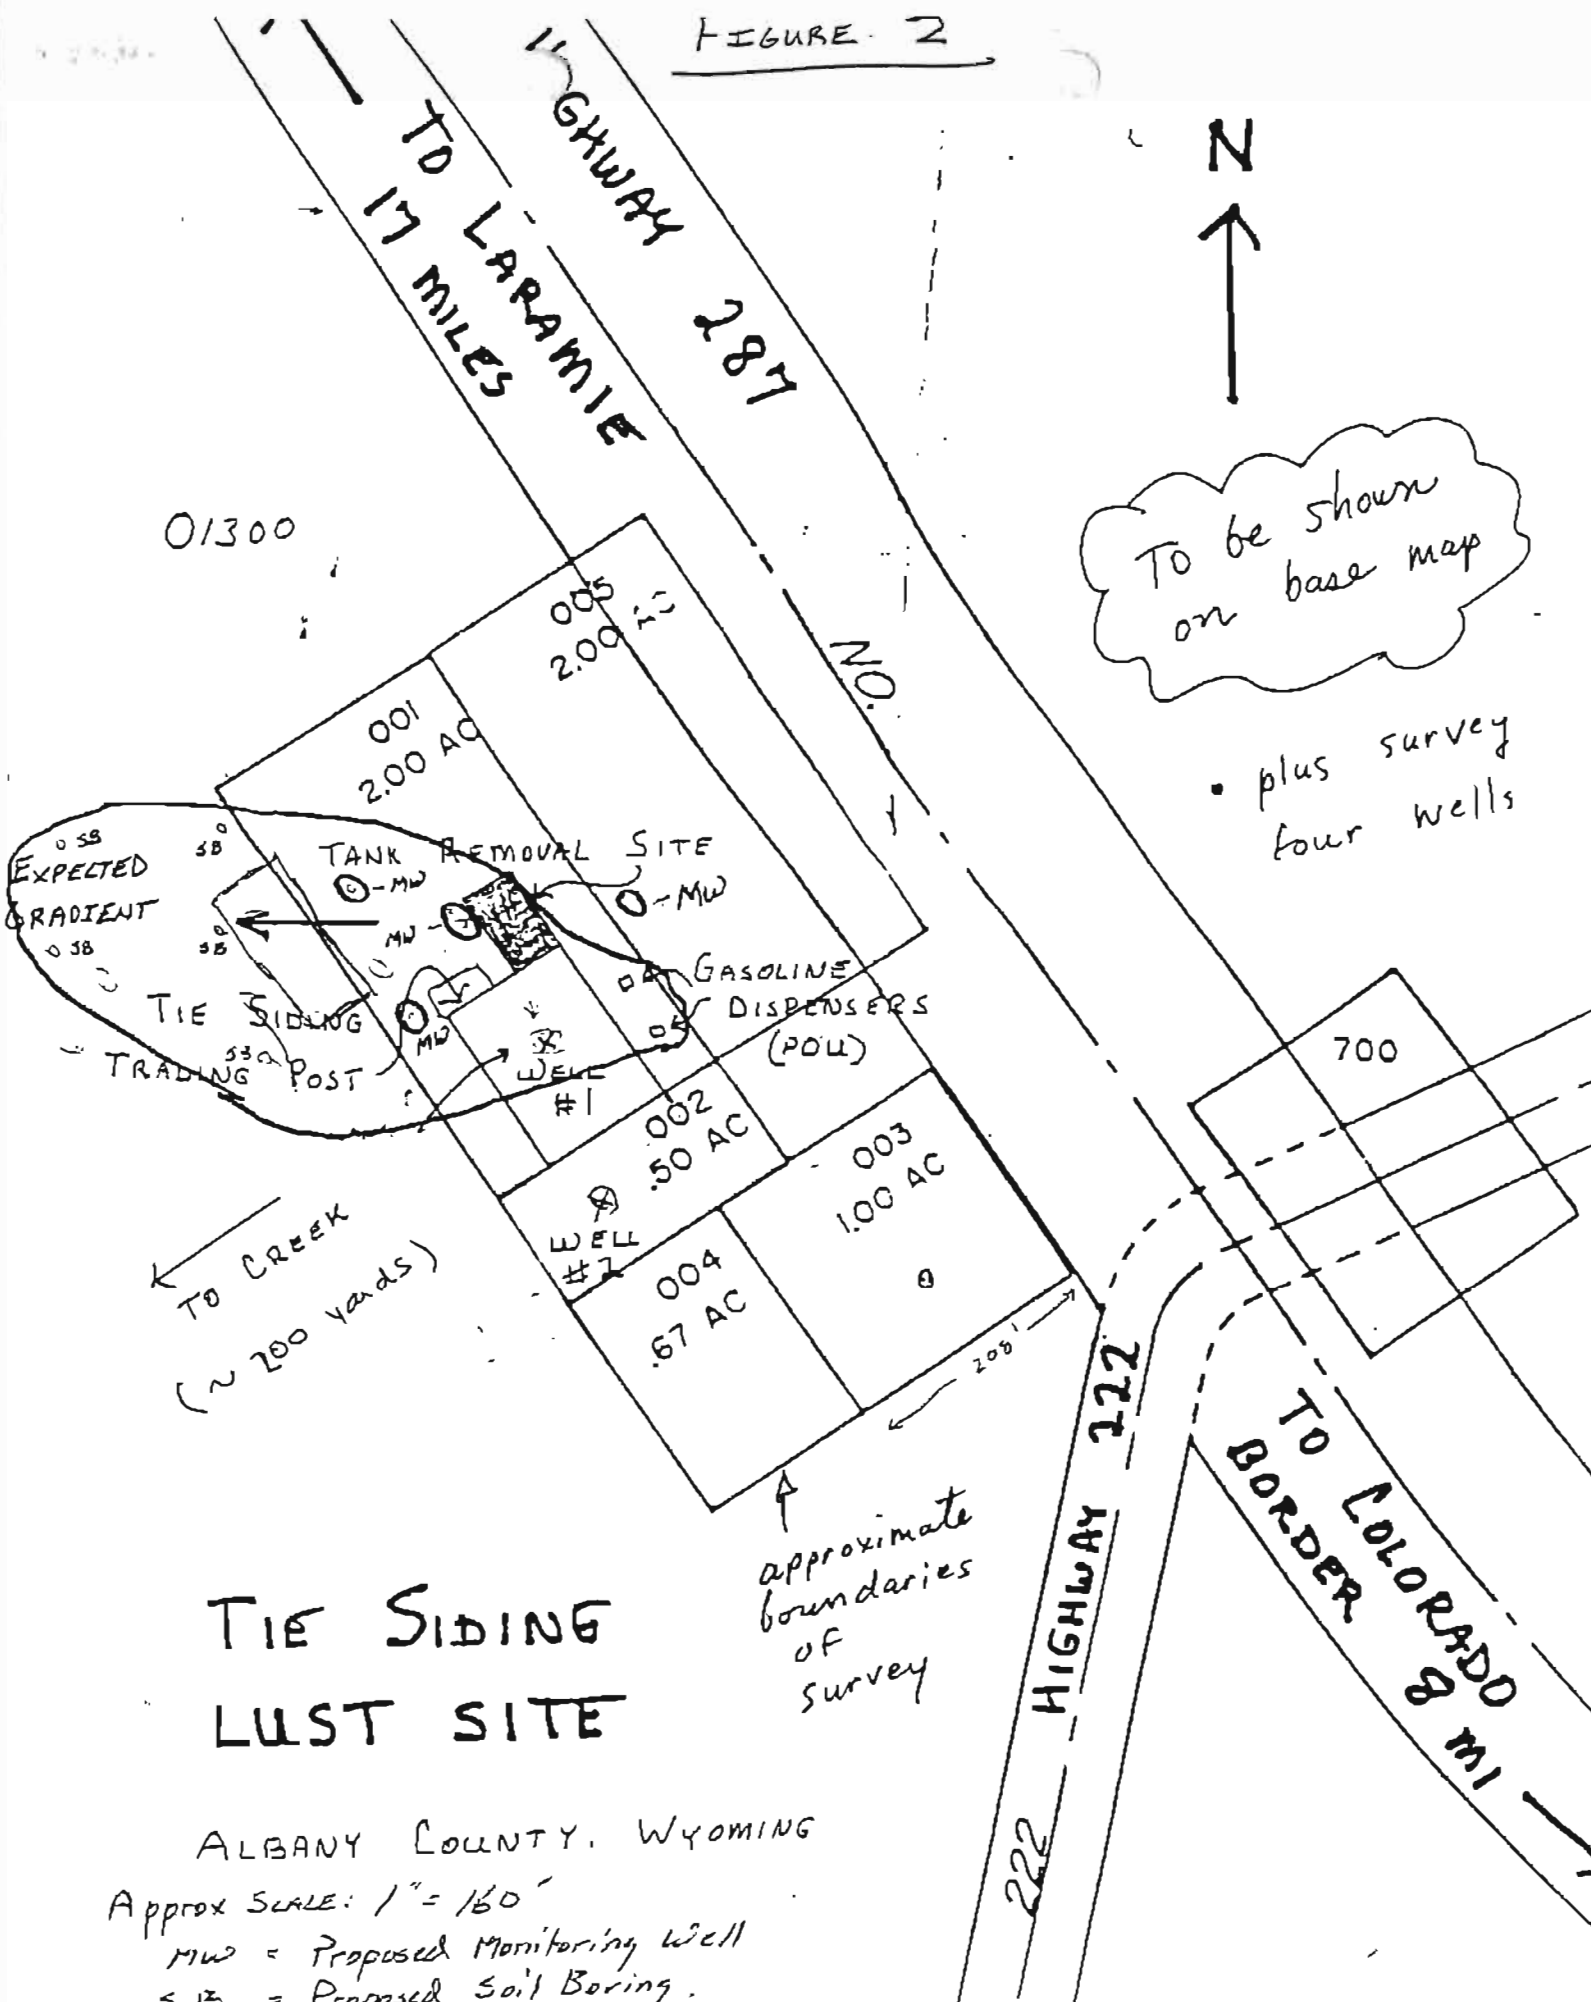 FIGURE 2
TO LARAMIE
17 MILES
GHWAY 287
N
To be shown
on base map
• plus survey
four wells
01300
005
2.00
NO.
001
2.00 AC
TANK REMOVAL SITE
SB
SB
EXPECTED
GRADIENT
-MW
MW-
-MW
SB
SB
GASOLINE
DISPENSERS
(POU)
TIE SIDING
TRADING POST
MW
SB
WELL
#1
700
002
.50 AC
003
1.00 AC
WELL
#2
004
.67 AC
TO CREEK
(~ 200 yards)
208'
approximate
boundaries
of
survey
HIGHWAY 222
222
TO COLORADO
BORDER 8 MI
TIE SIDING
LUST SITE
ALBANY COUNTY, WYOMING
Approx SCALE: 1" = 160'
MW = Proposed Monitoring Well
SB = Proposed Soil Boring.